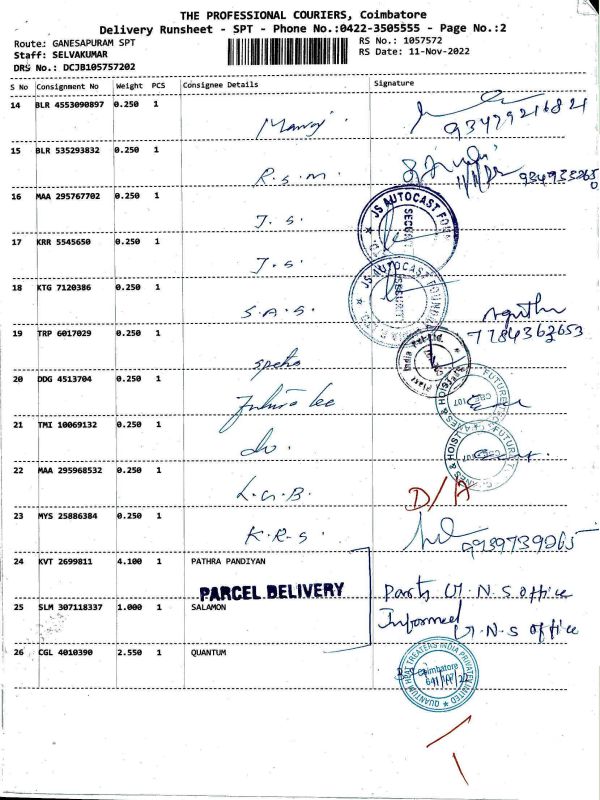 THE PROFESSIONAL COURIERS, Coimbatore
Delivery Runsheet - SPT - Phone No.:0422-3505555 - Page No.:2
Route: GANESAPURAM SPT
RS No.: 1057572
Staff: SELVAKUMAR
RS Date: 11-Nov-2022
DRS No.: DCJB105757202
S No Consignment No Weight PCS Consignee Details Signature
14 BLR 4553090897 0.250 1 Manoj
15 BLR 535293832 0.250 1 R.S.M.
16 MAA 295767702 0.250 1 J.S.
JS AUTOCAST
SECURITY
17 KRR 5545650 0.250 1 J.S.
JS AUTOCAST FOUNDRY
SECURITY
18 KTG 7120386 0.250 1 S.A.S.
7784362653
19 TRP 6017029 0.250 1
India Pvt Ltd.
20 DDG 4513704 0.250 1 Future tec
FUTURE TEC CRANES & HOISTS
21 TMI 10069132 0.250 1 do.
FUTURE TEC CRANES & HOISTS
22 MAA 295968532 0.250 1 L.G.B. D/A
23 MYS 25886384 0.250 1 K.R.S.
24 KVT 2699811 4.100 1 PATHRA PANDIYAN
PARCEL DELIVERY
Party G.N.S office
25 SLM 307118337 1.000 1 SALAMON
Informed
G.N.S office
26 CGL 4010390 2.550 1 QUANTUM
QUANTUM HEAT TREATERS INDIA PRIVATE LIMITED
Coimbatore